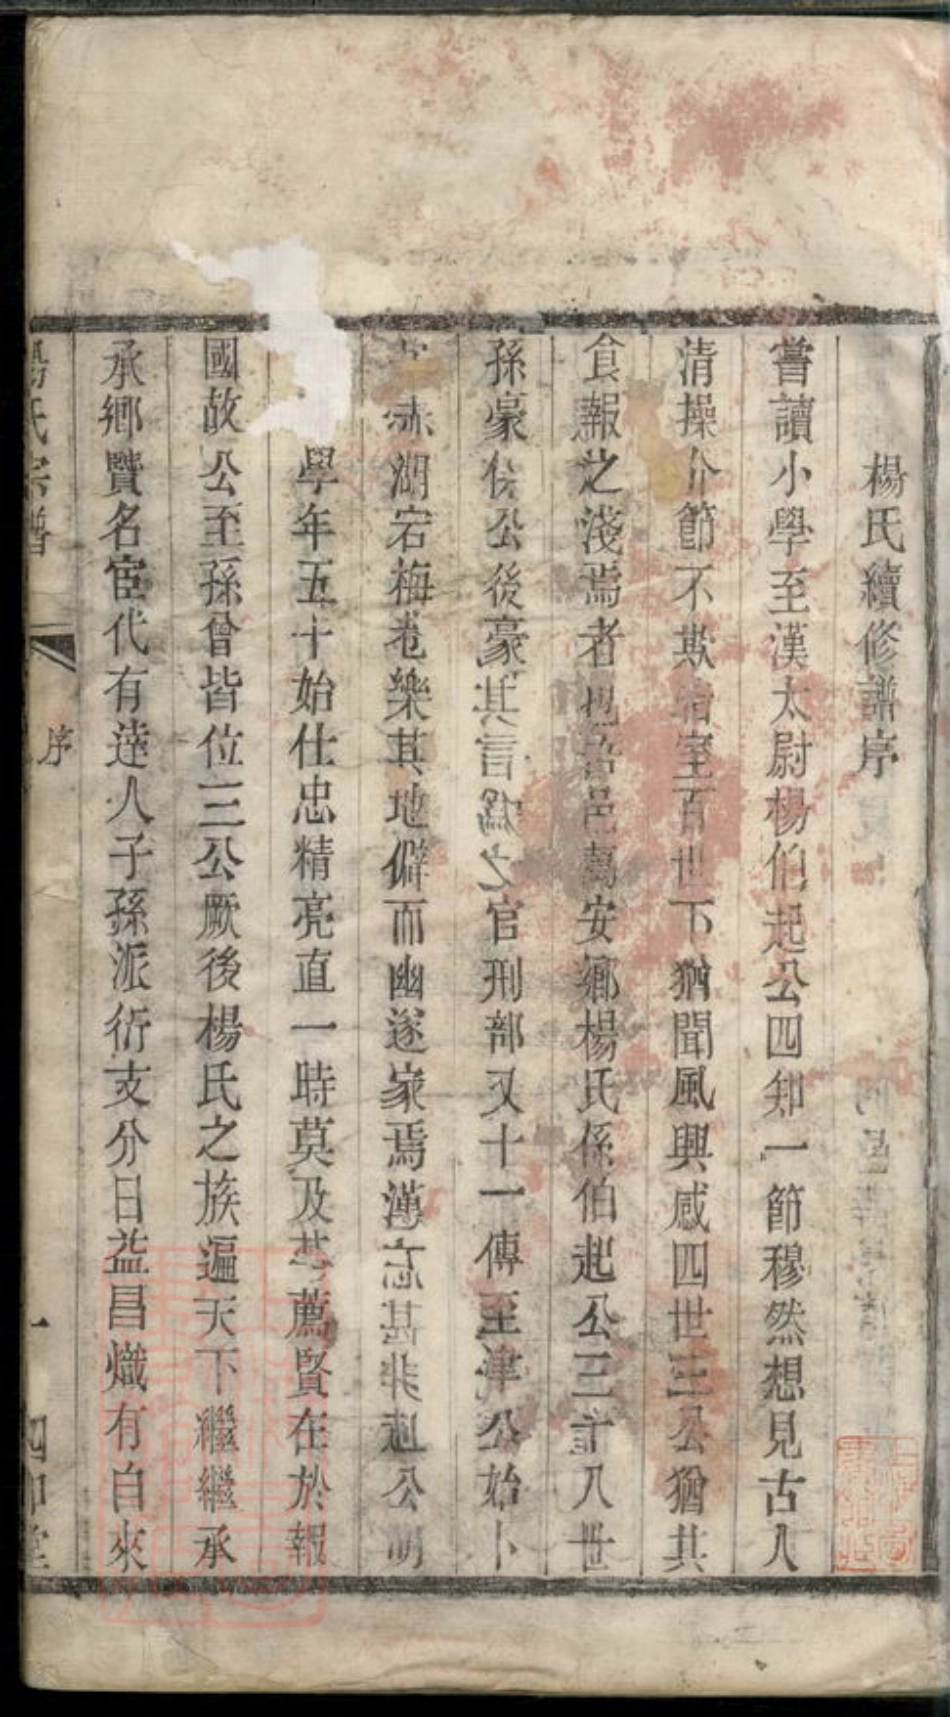 楊氏續修譜序
嘗讀小學至漢太尉楊伯起公四知一節穆然想見古人
清操介節不欺暗室百世下猶聞風興感四世三公猶其
食報之淺焉者也吾邑萬安鄉楊氏係伯起公三十八世
孫豪侯公後豪其言為之官刑部又十一傳至津公始卜
赤湖宕梅巷樂其地僻而幽遂家焉薄忘甚非赳公
學年五十始仕忠精亮直一時莫及其薦賢在於報
國故公至孫曾皆位三公厥後楊氏之族遍天下繼繼承
承鄉贒名宦代有達人子孫派衍支分日益昌熾有自來
楊氏宗譜
序
一
四知堂